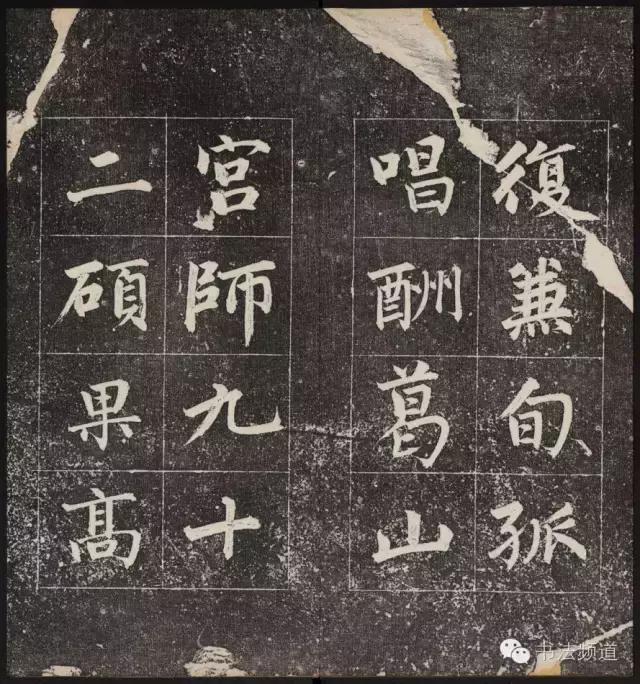 復兼旬孤
唱酬葛山
宮師九十
二碩果高
书法频道